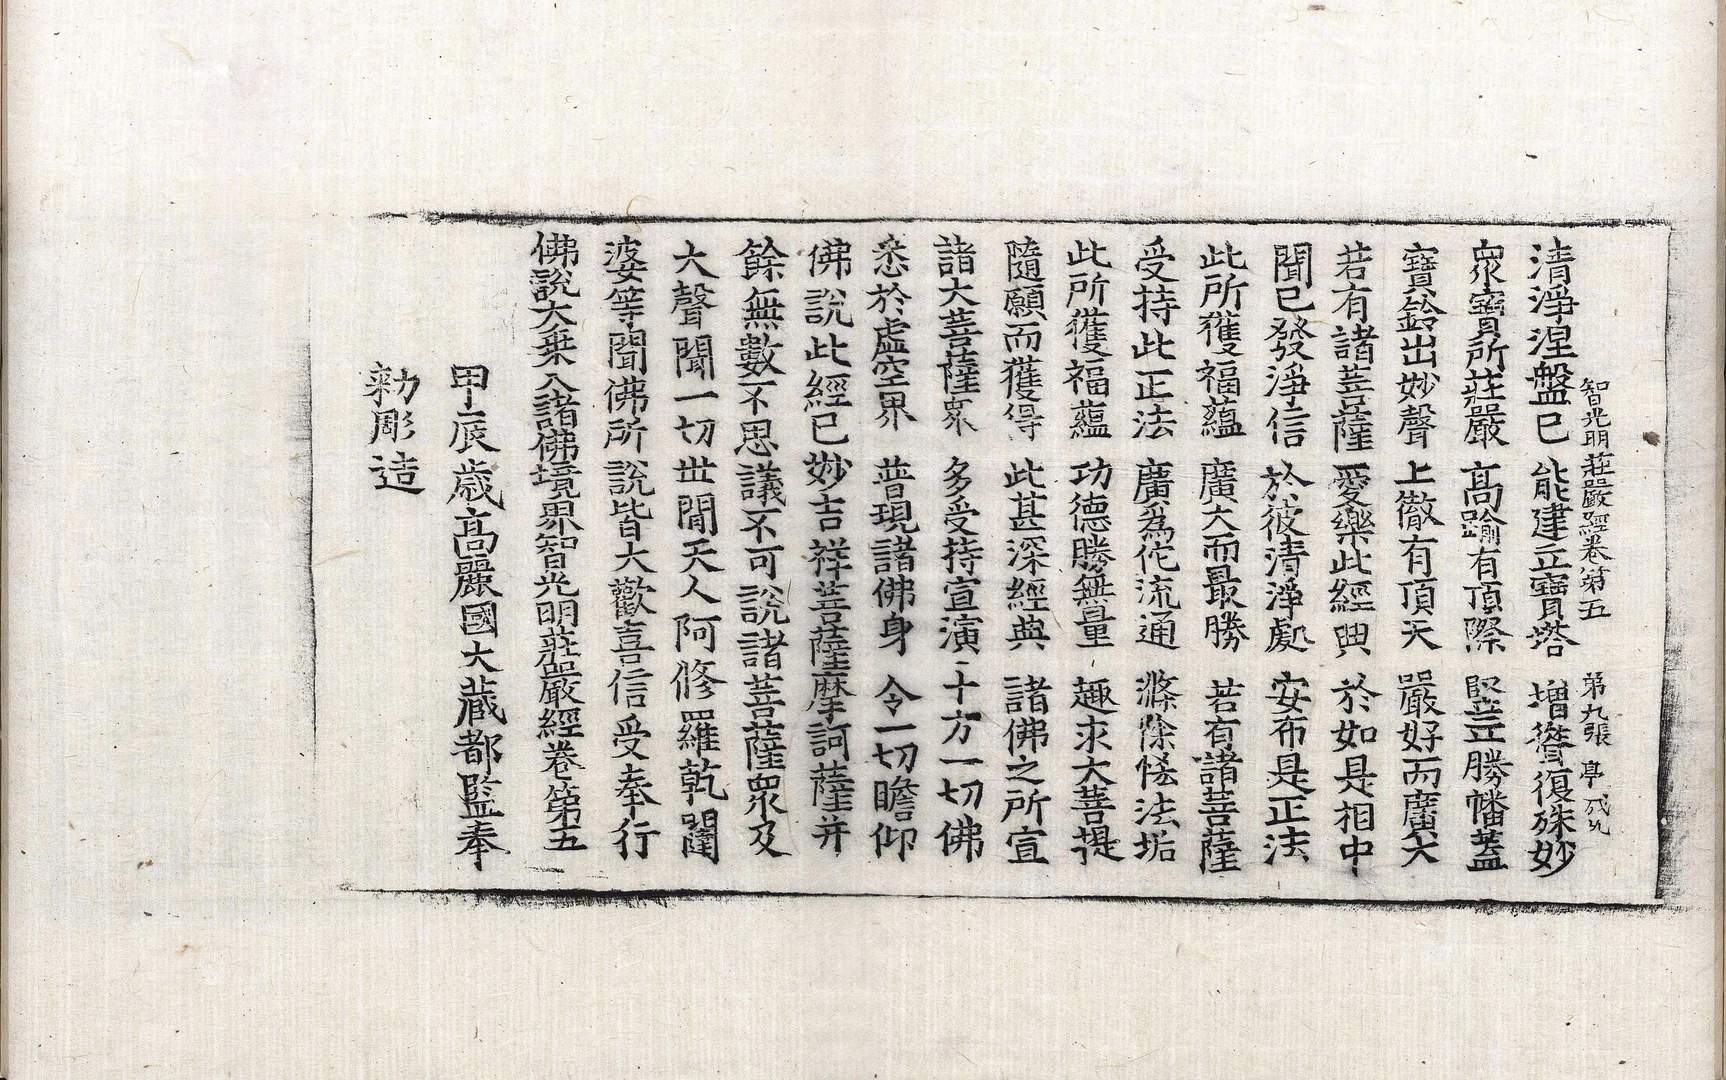 智光明莊嚴經卷第五 第九張 亭
清淨涅盤已 能建立寶塔 增聳復殊妙
衆寶所莊嚴 高踰有頂際 竪立勝幡蓋
寶鈴出妙聲 上徹有頂天 嚴好而廣大
若有諸菩薩 愛樂此經典 於如是相中
聞已發淨信 於彼清淨處 安布是正法
此所獲福蘊 廣大而最勝 若有諸菩薩
受持此正法 廣爲佗流通 滌除慳法垢
此所獲福蘊 功德勝無量 趣求大菩提
隨願而獲得 此甚深經典 諸佛之所宣
諸大菩薩衆 多受持宣演 十方一切佛
悉於虛空界 普現諸佛身 令一切瞻仰
佛說此經已妙吉祥菩薩摩訶薩并
餘無數不思議不可說諸菩薩衆及
大聲聞一切世間天人阿修羅乾闥
婆等聞佛所說皆大歡喜信受奉行
佛說大乘入諸佛境界智光明莊嚴經卷第五
甲辰歲高麗國大藏都監奉
勅彫造